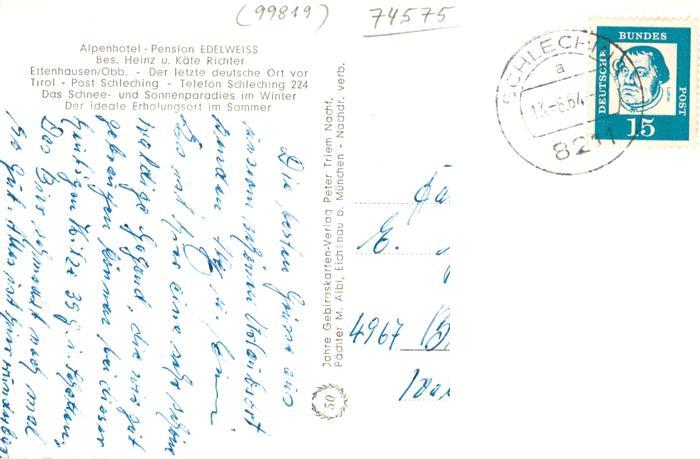 (99819)
74575
Alpenhotel - Pension EDELWEISS
Bes. Heinz u. Käte Richter
Ettenhausen/Obb. - Der letzte deutsche Ort vor
Tirol - Post Schleching - Telefon Schleching 224
Das Schnee- und Sonnenparadies im Winter
Der ideale Erholungsort im Sommer
Die besten Grüsse aus
unserem schönen Urlaubsort
senden
Das ist hier eine sehr schöne
waldige Gegend, die wir gut
gebrauchen können bei dieser
Hitze 35 g. i. Schatten,
Das Bier schmeckt noch mal
so gut. Alles ist hier wunderbar
Jahre Gebirgskarten-Verlag Peter Triem Nachf.
Pächter M. Aibl, Eichenau b. München - Nachdr. verb.
50
SCHLECHING
a
13.-8.64
8211
DEUTSCHE
BUNDES
POST
Luther
15
E.
4967 B